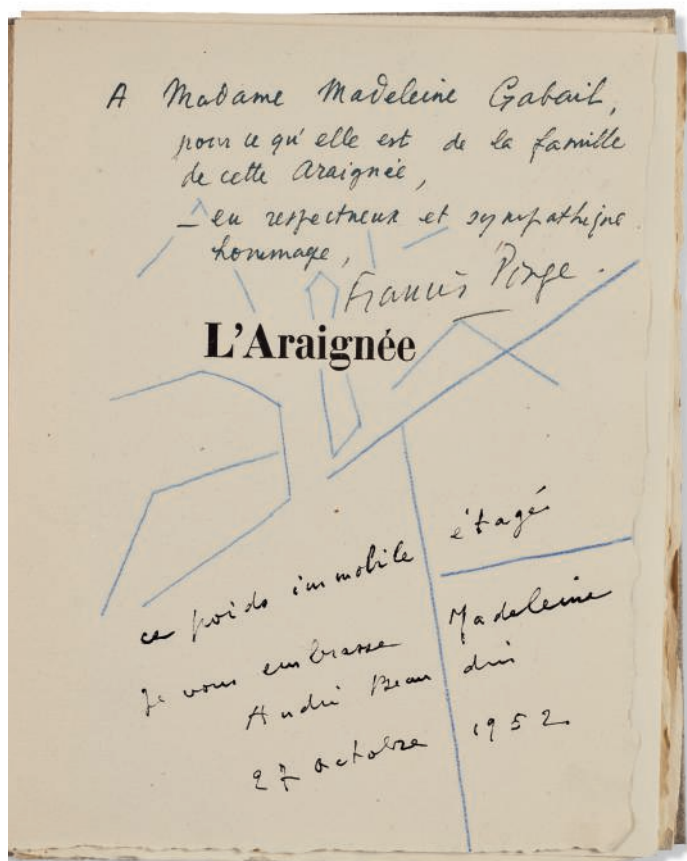 A Madame Madeleine Gabail,
pour ce qu'elle est de la famille
de cette Araignée,
– en respectueux et sympathique
hommage,
Francis Ponge.
L'Araignée
ce poids immobile étagé
Je vous embrasse Madeleine
André Beaudin
27 octobre 1952